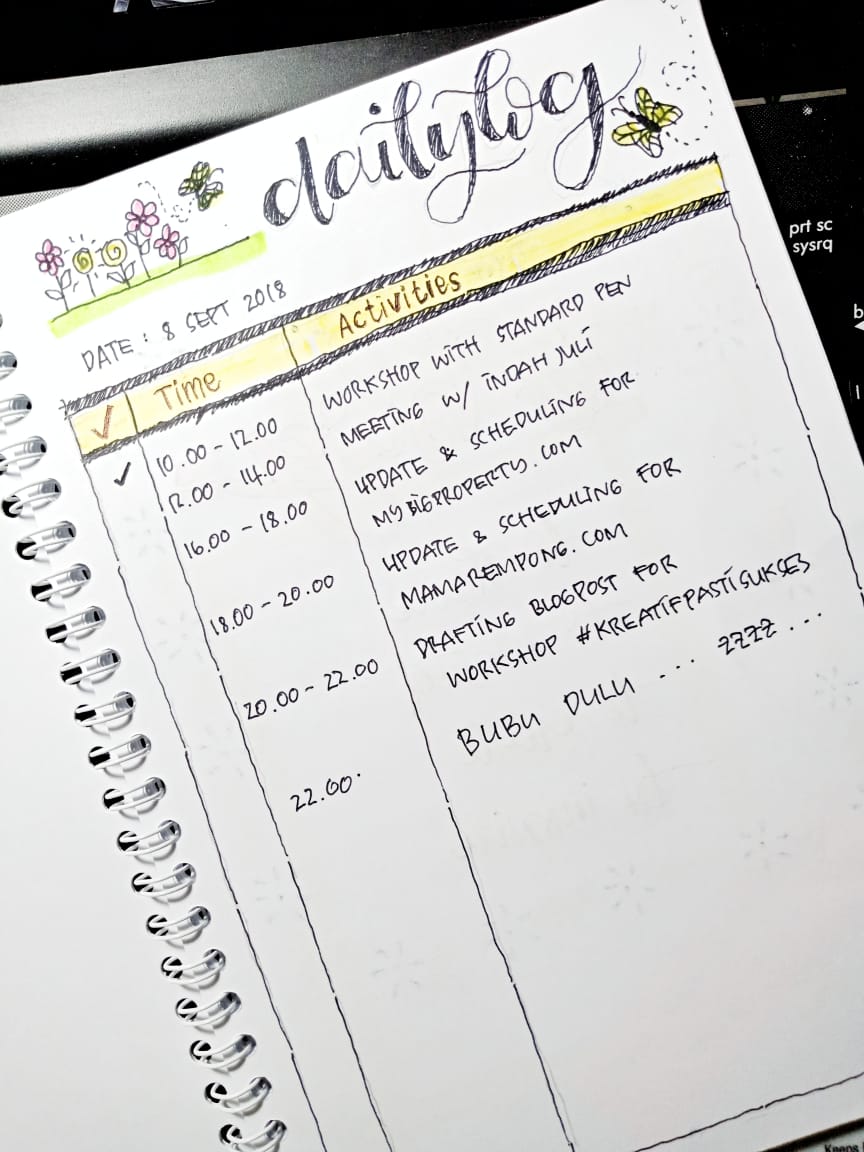 dailylog
DATE : 8 SEPT 2018
✓ Time Activities
✓ 10.00 - 12.00 WORKSHOP WITH STANDARD PEN
12.00 - 14.00 MEETING W/ INDAH JULI
16.00 - 18.00 UPDATE & SCHEDULING FOR
MYBIGPROPERTY.COM
18.00 - 20.00 UPDATE & SCHEDULING FOR
MAMAREMPONG.COM
20.00 - 22.00 DRAFTING BLOGPOST FOR
WORKSHOP #KREATIFPASTISUKSES
22.00. BUBU DULU ... ZZZZ ...
prt sc
sysrq